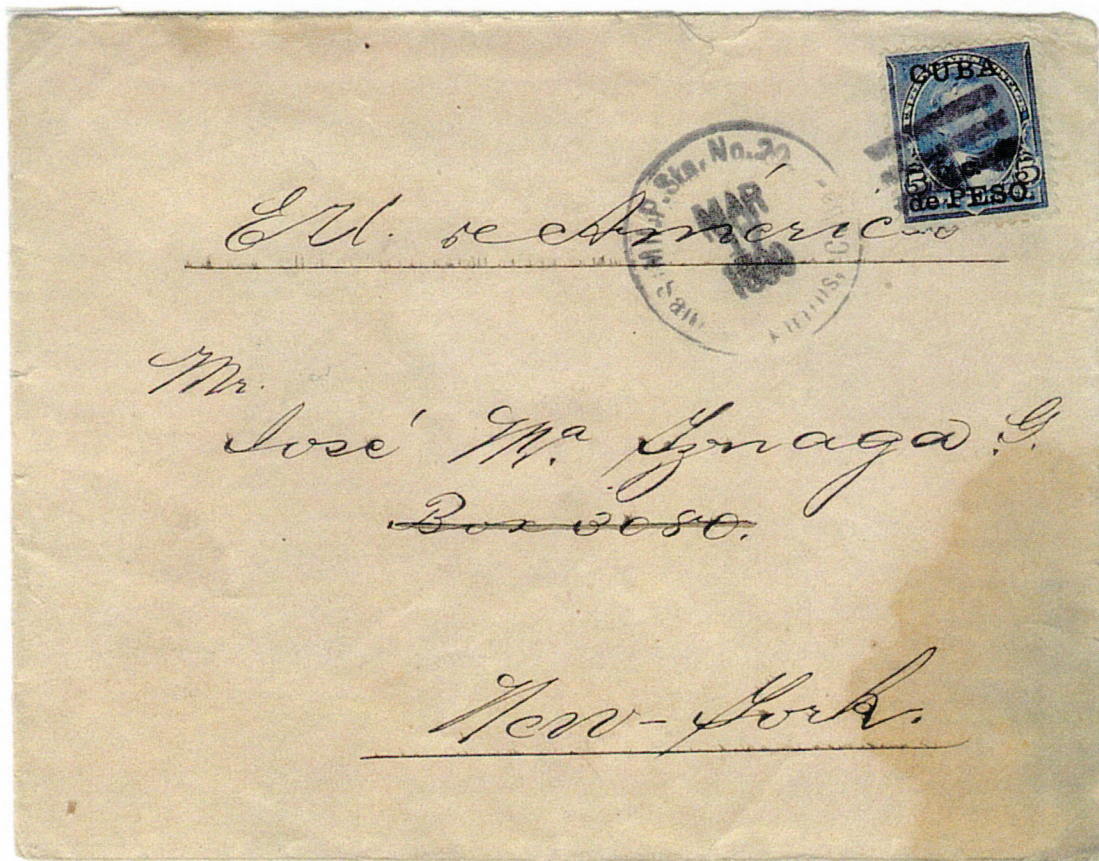 CUBA
5 5
de PESO.
Mil. P. Sta. No. 20
MAR
17
1899
E.U. de América
Mr.
José Mª Yznaga G.
Box 3080.
New-York.